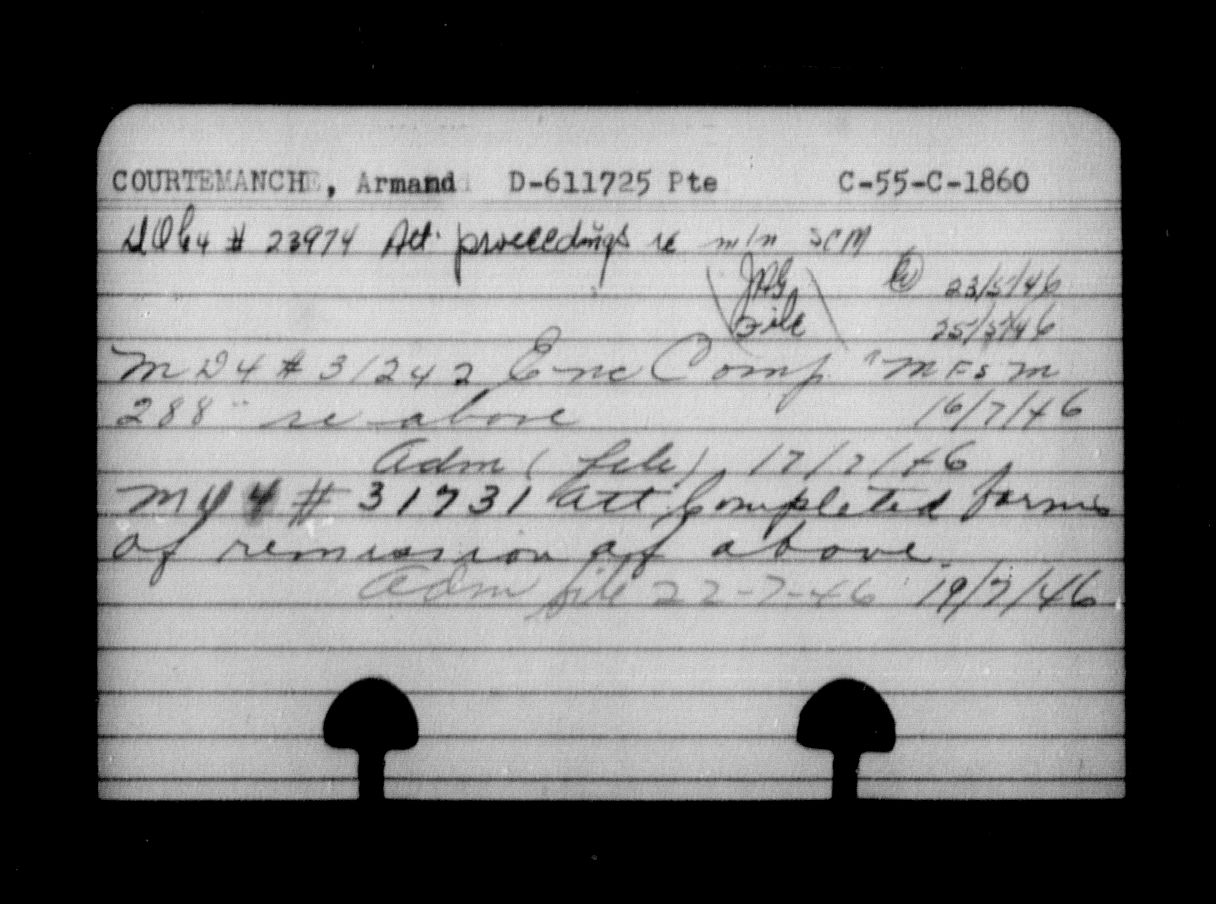 COURTEMANCHE, Armand D-611725 Pte C-55-C-1860
# 23974 Att. proceedings re m/n SCM
JAG 23/5/46
File 25/5/46
MD4 # 31242 Enc Comp "MFSM
288" re above 16/7/46
Adm (file) 17/7/46
MD4 # 31731 Att Completed forms
of remission of above.
Adm file 22-7-46 19/7/46